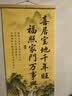 喜居宝地千年旺
福照家门万事兴